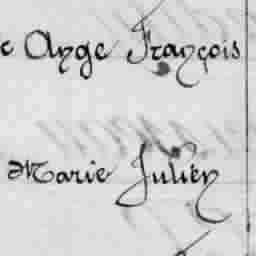 Ange François
Marie Julien